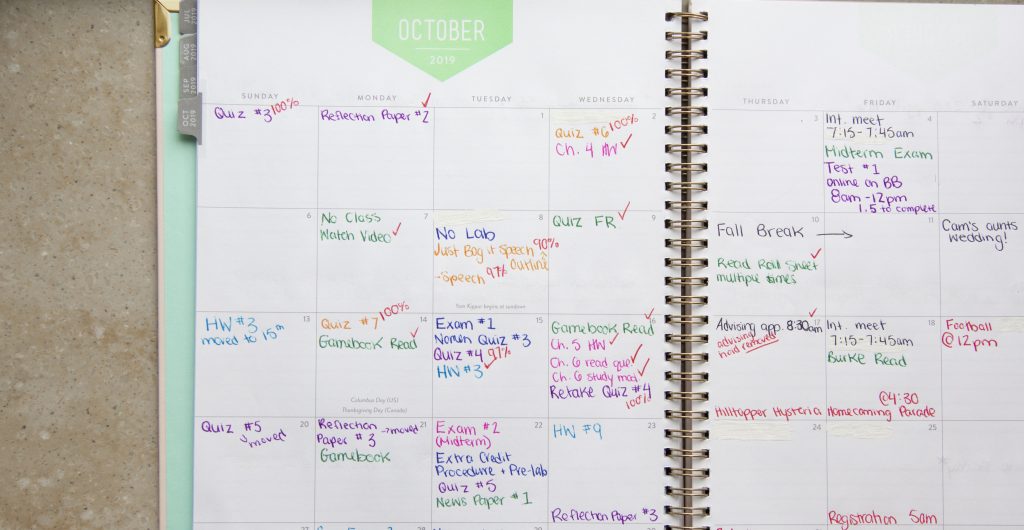 JUL 2019
AUG 2019
SEP 2019
OCT 2019
OCTOBER
2019
SUNDAY
MONDAY
TUESDAY
WEDNESDAY
THURSDAY
FRIDAY
SATURDAY
Quiz #3 100%
Reflection Paper #2
1
2
Quiz #6 100%
Ch. 4 HW
3
4
Int. meet
7:15-7:45am
Midterm Exam
Test #1
online on BB
8am-12pm
1.5 to complete
6
7
No Class
Watch Video
8
No Lab
Just Bag it Speech 90%
Outline
-Speech 97%
Yom Kippur begins at sundown
9
Quiz FR
10
Fall Break
Read Roll Sheet
multiple times
11
Cam's aunts
wedding!
13
HW #3
moved to 15th
14
Quiz #7 100%
Gamebook Read
Columbus Day (US)
Thanksgiving Day (Canada)
15
Exam #1
Nomen Quiz #3
Quiz #4 97%
HW #3
16
Gamebook Read
Ch. 5 HW
Ch. 6 read que
Ch. 6 study mod
Retake Quiz #4
100%
17
Advising app. 8:30am
advising
hold removed
Hilltopper Hysteria
18
Int. meet
7:15-7:45am
Burke Read
@4:30
Homecoming Parade
Football
@12pm
20
Quiz #5
moved
21
Reflection
Paper #3
moved
Gamebook
22
Exam #2
(Midterm)
Extra Credit
Procedure + Pre-lab
Quiz #5
News Paper #1
23
HW #9
Reflection Paper #3
24
25
Registration 5am
27
28
29
30